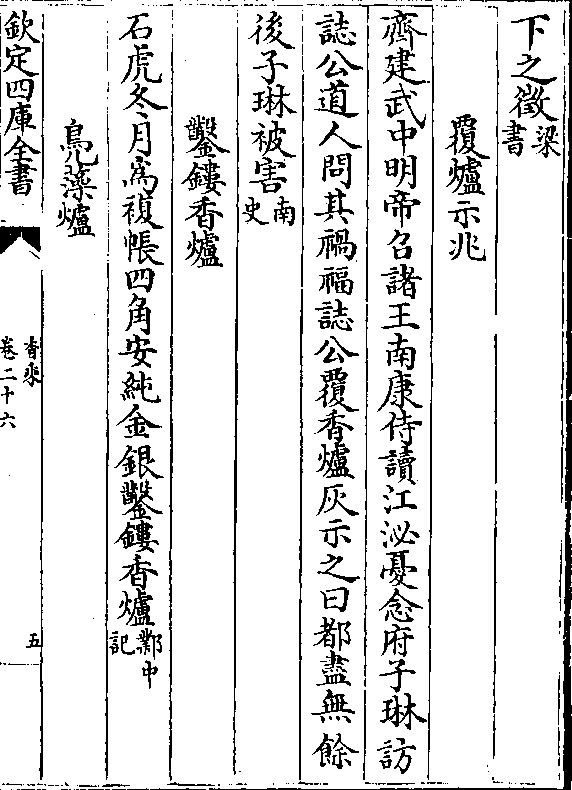 下之徵梁書
覆爐示兆
齊建武中明帝召諸王南康侍讀江泌憂念府子琳訪
誌公道人問其禍福誌公覆香爐灰示之曰都盡無餘
後子琳被害南史
鑿鏤香爐
石虎冬月為複帳四角安純金銀鑿鏤香爐鄴中記
鳧藻爐
欽定四庫全書
香乘
卷二十六
五